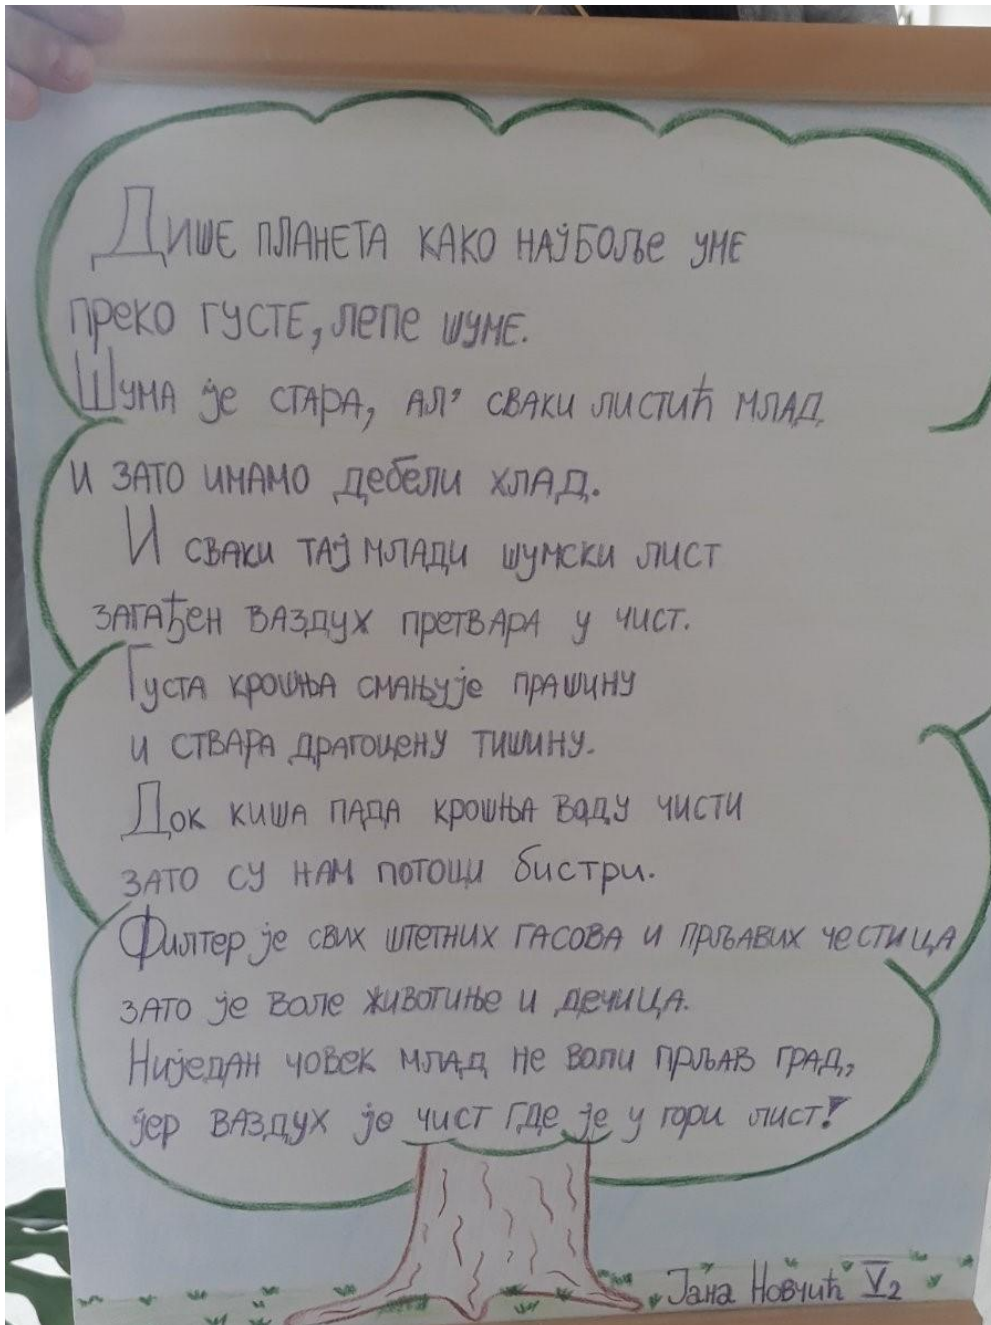 Дише планета како најбоље уме
преко густе, лепе шуме.
Шума је стара, ал' сваки листић млад
и зато имамо дебели хлад.
И сваки тај млади шумски лист
загађен ваздух претвара у чист.
Густа крошња смањује прашину
и ствара драгоцену тишину.
Док киша пада крошња воду чисти
зато су нам потоци бистри.
Филтер је свих штетних гасова и прљавих честица
зато је воле животиње и дечица.
Ниједан човек млад не воли прљав град,
јер ваздух је чист где је у гори лист!
Јана Новчић V2